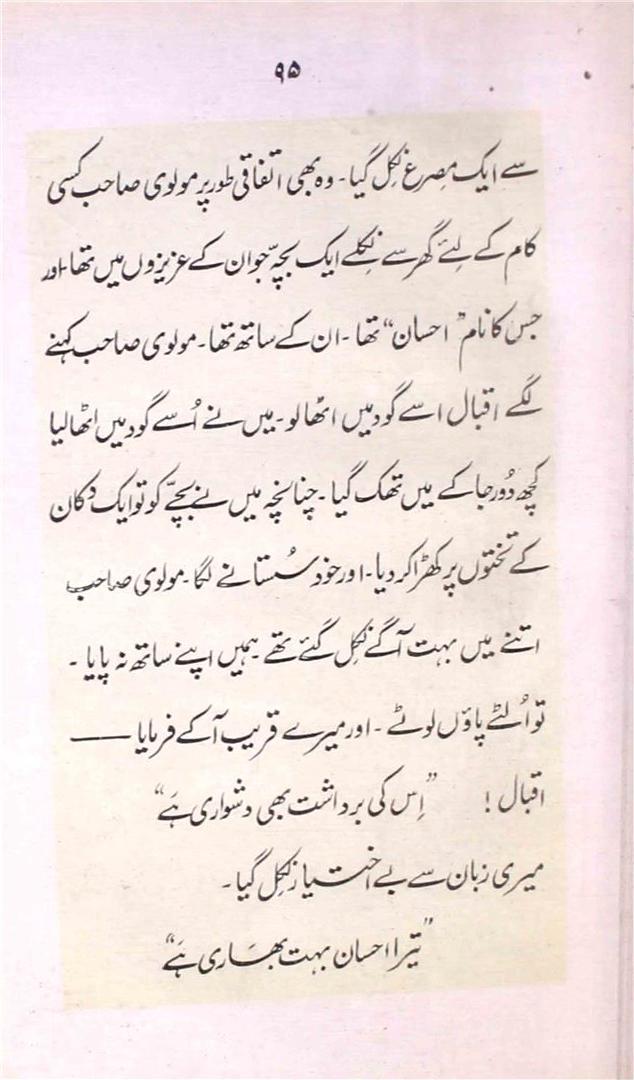 ۹۵
سے ایک مصرع نکل گیا۔ وہ بھی اتفاقی طور پر مولوی صاحب کسی
کام کے لئے گھر سے نکلے ایک بچہ جو ان کے عزیزوں میں تھا۔ اور
جس کا نام "احسان" تھا۔ ان کے ساتھ تھا۔ مولوی صاحب کہنے
لگے اقبال اسے گود میں اٹھا لو۔ میں نے اُسے گود میں اٹھا لیا
کچھ دُور جا کے میں تھک گیا۔ چنانچہ میں نے بچے کو تو ایک دکان
کے تختوں پر کھڑا کر دیا۔ اور خود سُستانے لگا۔ مولوی صاحب
اتنے میں بہت آگے نکل گئے تھے ہمیں اپنے ساتھ نہ پایا۔
تو اُلٹے پاؤں لوٹے۔ اور میرے قریب آ کے فرمایا ——
اقبال! "اِس کی برداشت بھی دشواری ہَے"
میری زبان سے بے اختیار نکل گیا۔
"تیرا احسان بہت بھاری ہَے"